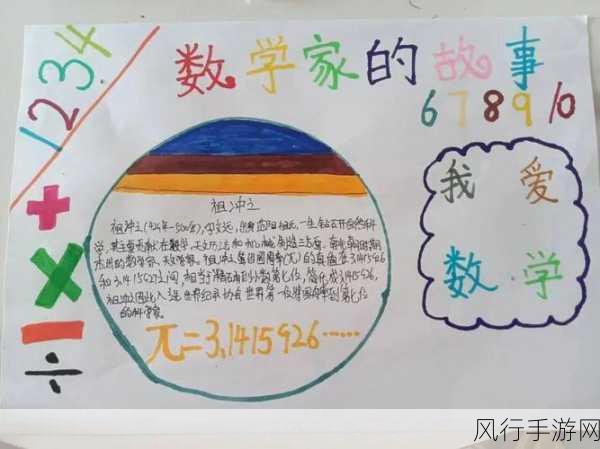 数学家的故事
1234
678910
+×-÷
我爱
数学
祖冲之
祖冲之(429年-500年),字文远,出身范阳祖氏,一生钻研自然科
学,其主要贡献在数学、天文历法和机械制造三方面。南北朝时期
杰出的数学家、天文学家。祖冲之算出圆周率(π)的真值在3.1415926
和3.1415927之间,相当于精确到小数第七位,简化成3.1415926,
祖冲之因此入选世界纪录协会世界第一位将圆周率到第七位
的科学家
π=3.1415926……
风行手游网